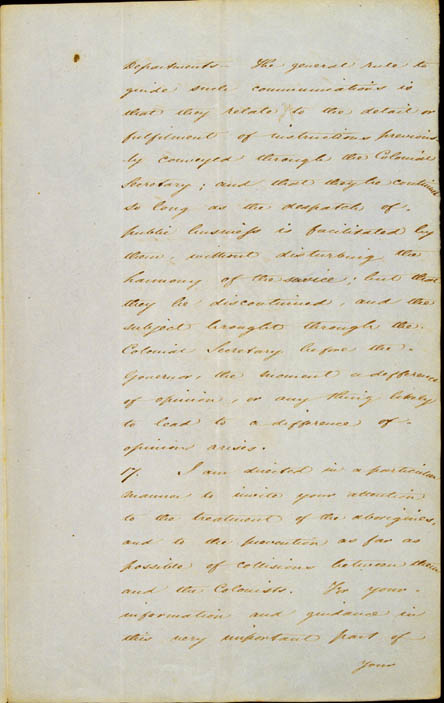 Departments. The general rule to
guide such communications is
that they relate to the detail or
fulfilment of instructions previous
by conveyed through the Colonial
Secretary; and that they be continued
so long as the despatch of
public business is facilitated by
them, without disturbing the
harmony of the service; but that
they be discontinued, and the
subject brought through the
Colonial Secretary before the
Governor, the moment a difference
of opinion, or any thing likely
to lead to a difference of
opinion arises.
17. I am directed in a particular
manner to invite your attention
to the treatment of the aborigines,
and to the prevention as far as
possible of collisions between them
and the Colonists. For your
information and guidance in
this very important part of
your